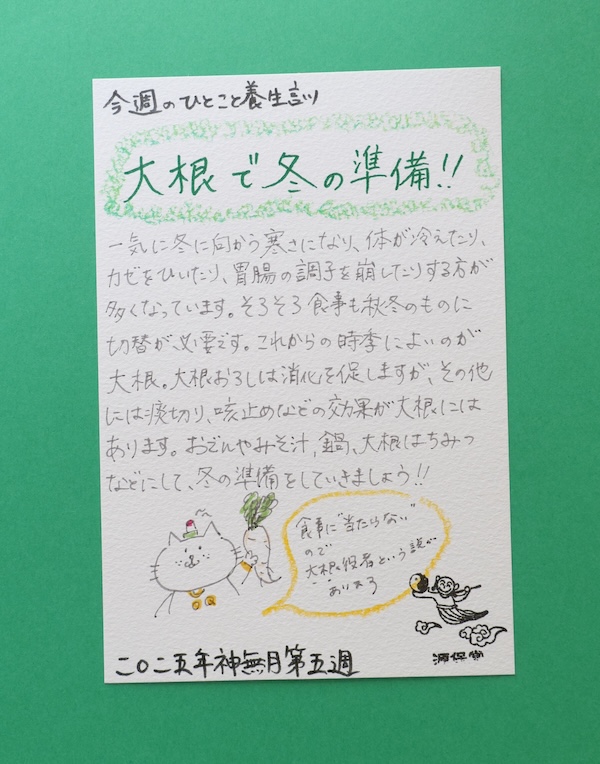 今週のひとこと養生訓
大根で冬の準備!!
一気に冬に向かう寒さになり、体が冷えたり、
カゼをひいたり、胃腸の調子を崩したりする方が
多くなっています。そろそろ食事も秋冬のものに
切替が必要です。これからの時季によいのが
大根。大根おろしは消化を促しますが、その他
には痰切り、咳止めなどの効果が大根には
あります。おでんやみそ汁、鍋、大根はちみつ
などにして、冬の準備をしていきましょう!!
食事に"当たらない"
ので
大根役者という説が
あり〼
二〇二五年神無月第五週
源保堂